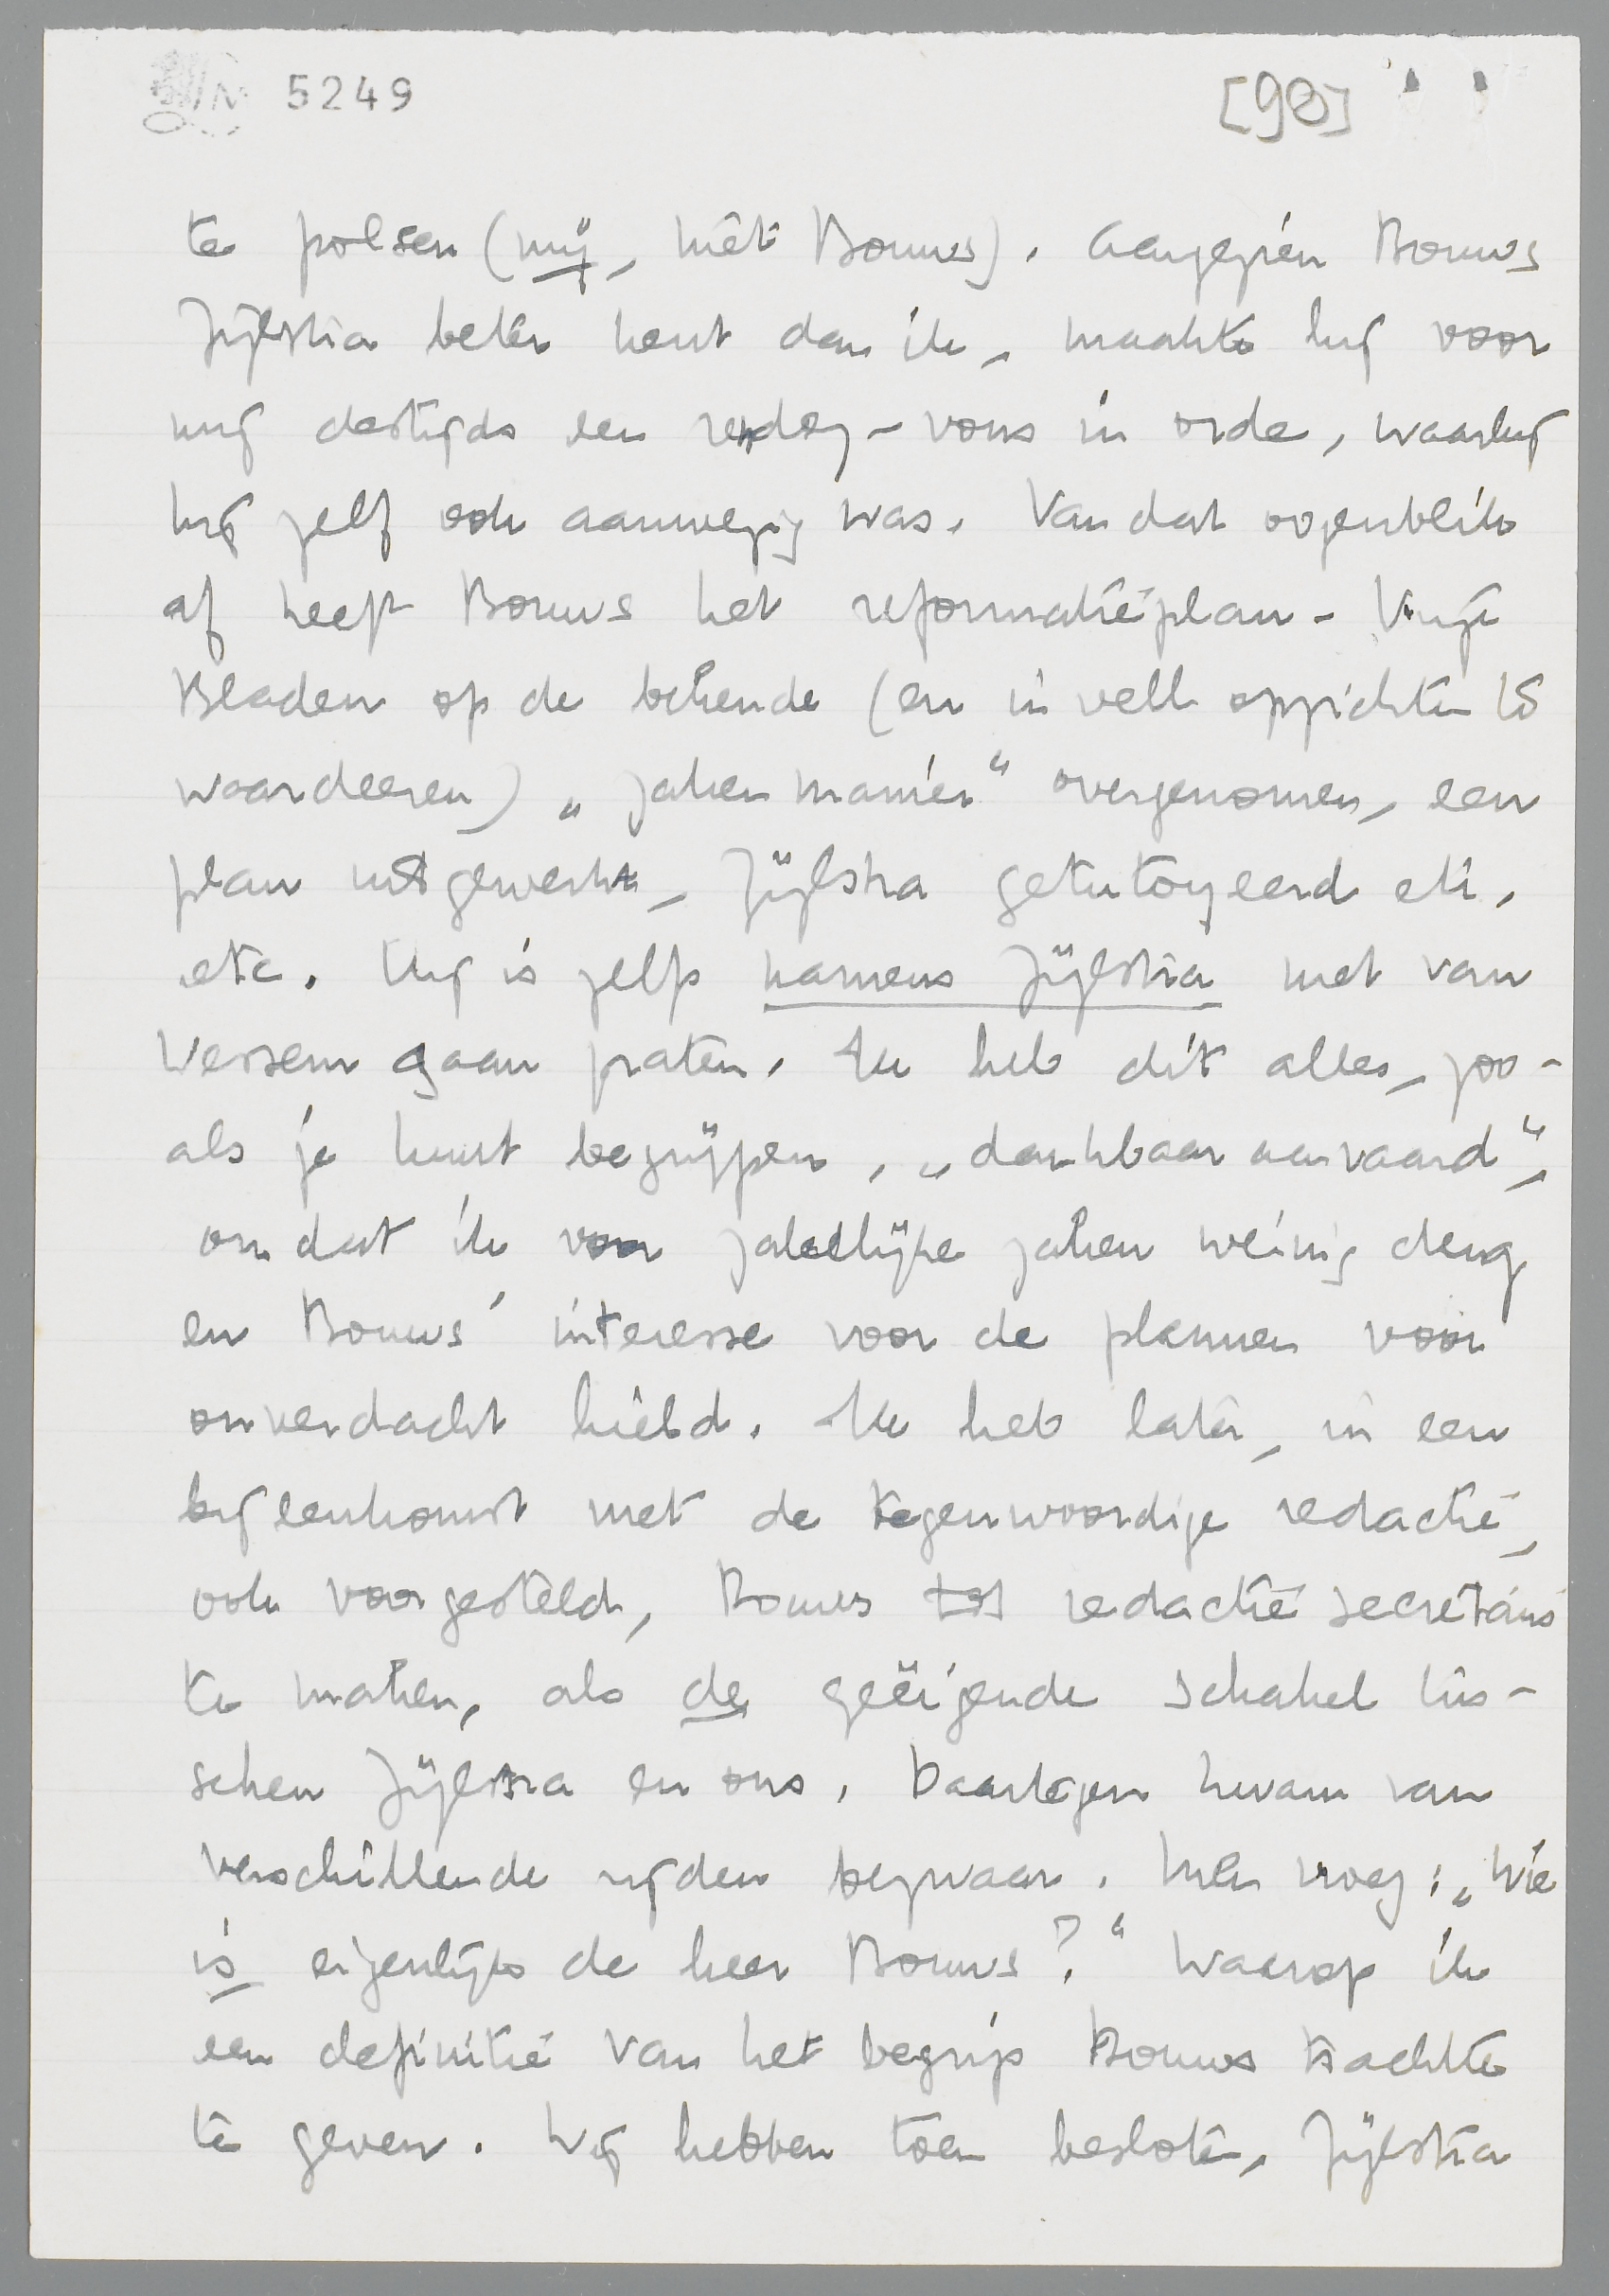 5249
[98]
te polsen (mij, niet Bouws). Aangezien Bouws
Zijlstra beter kent dan ik, maakte hij voor
mij destijds een rendez-vous in orde, waarbij
hij zelf ook aanwezig was. Van dat oogenblik
af heeft Bouws het reformatieplan-Vrije
Bladen op de bekende (en in vele opzichten te
waardeeren) „zakenmanier“ overgenomen, een
plan uitgewerkt, Zijlstra getutoyeerd etc.
etc. Hij is zelfs namens Zijlstra met van
Wessem gaan praten. Ik heb dit alles, zoo-
als je kunt begrijpen, „dankbaar aanvaard“,
omdat ik voor zakelijke zaken weinig deug
en Bouws' interesse voor de plannen voor
onverdacht hield. Ik heb later, in een
bijeenkomst met de tegenwoordige redactie,
ook voorgesteld, Bouws tot redactiesecretaris
te maken, als de geëigende schakel tus-
schen Zijlstra en ons. Daartegen kwam van
verschillende zijden bezwaar. Men vroeg: „Wie
is eigenlijk de heer Bouws?“ Waarop ik
een definitie van het begrip Bouws trachtte
te geven. Wij hebben toen besloten, Zijlstra